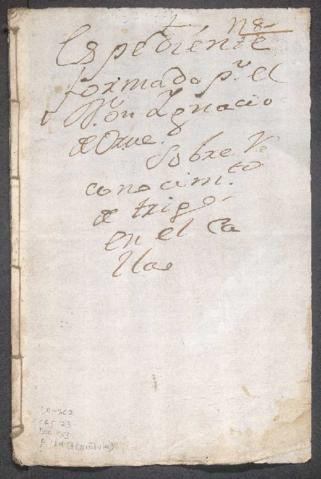 N 8
Espediente
formado pr. el
Dn Ygnacio
de Orue.
Sobre re
conocimto
de trigo
en el Ca
llao